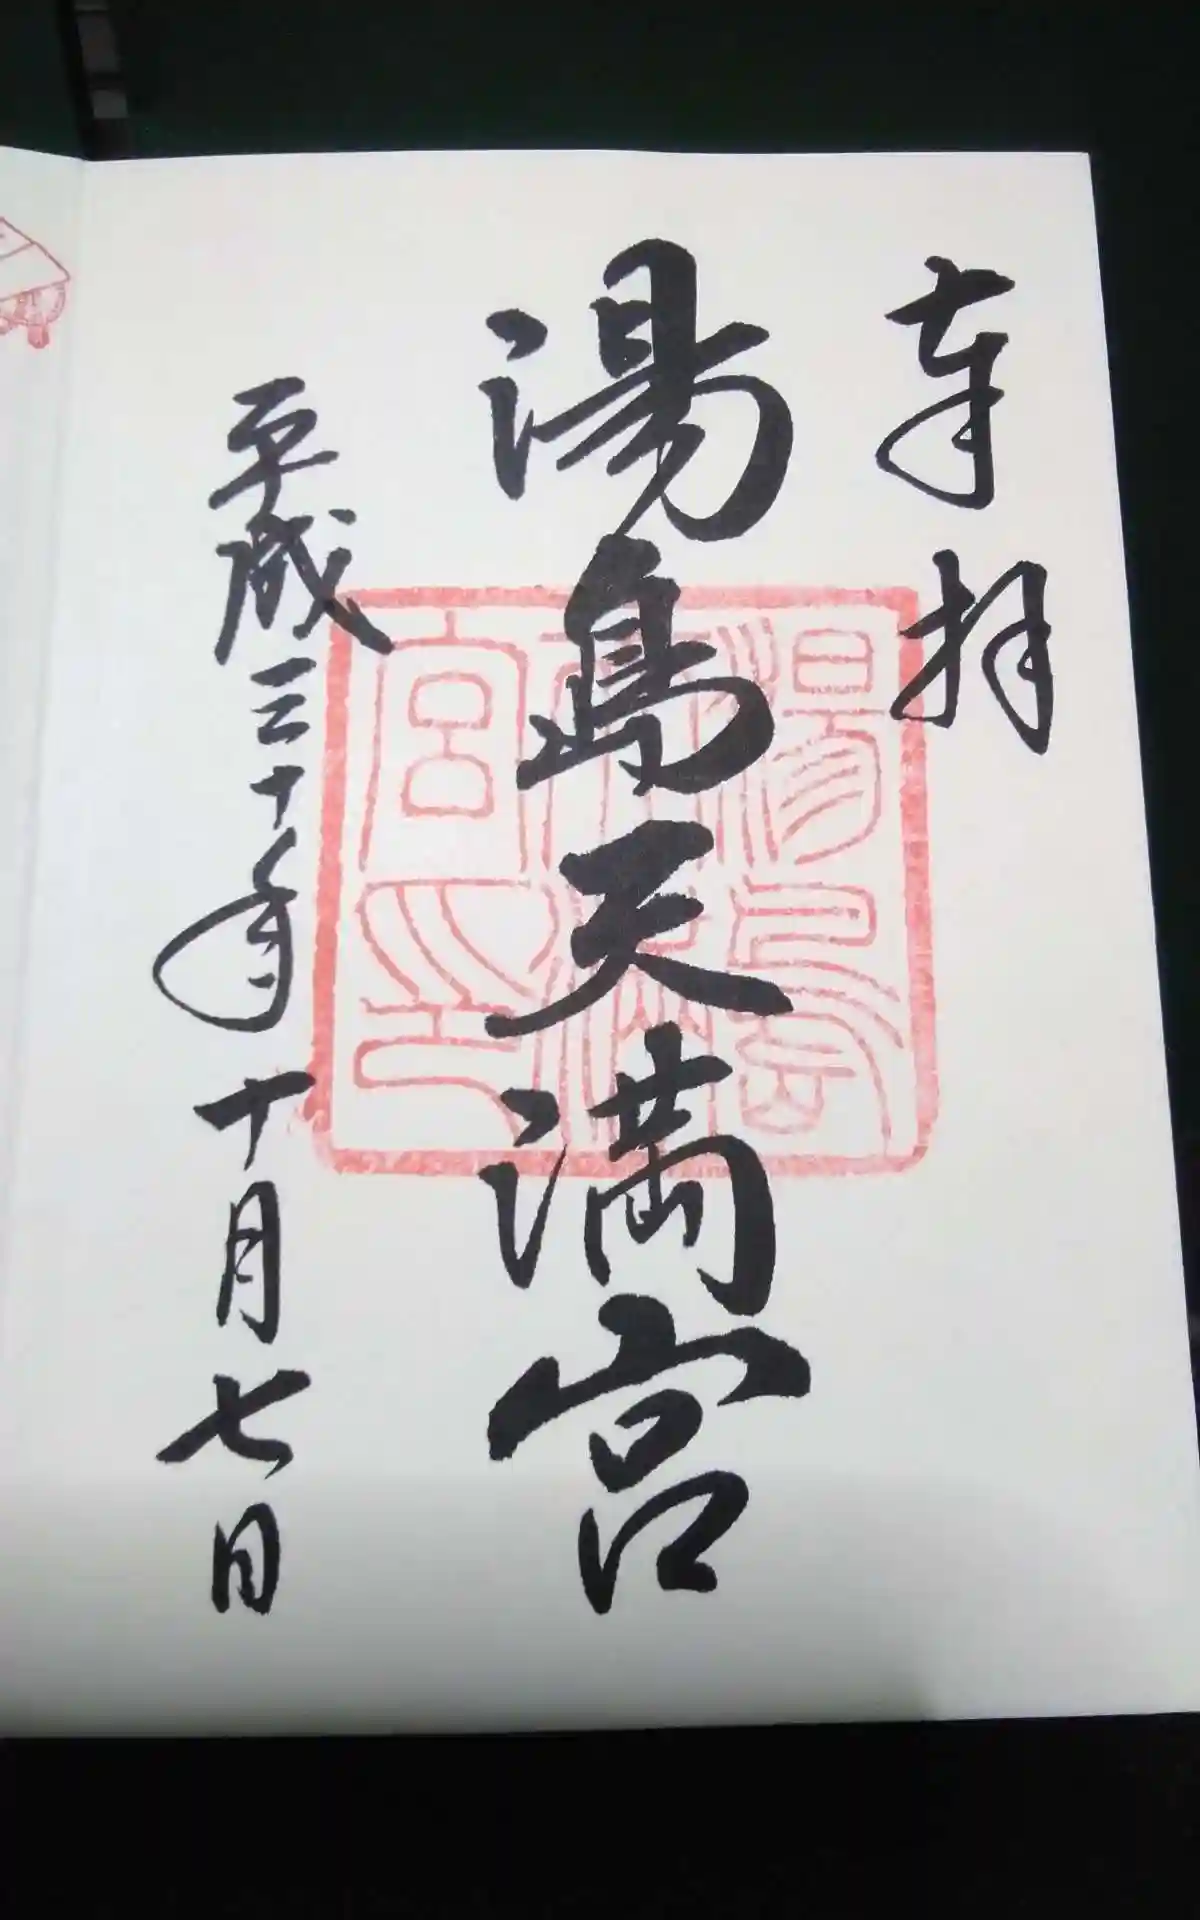 奉拝
湯島天満宮
湯島天満宮印
平成三十年十月七日